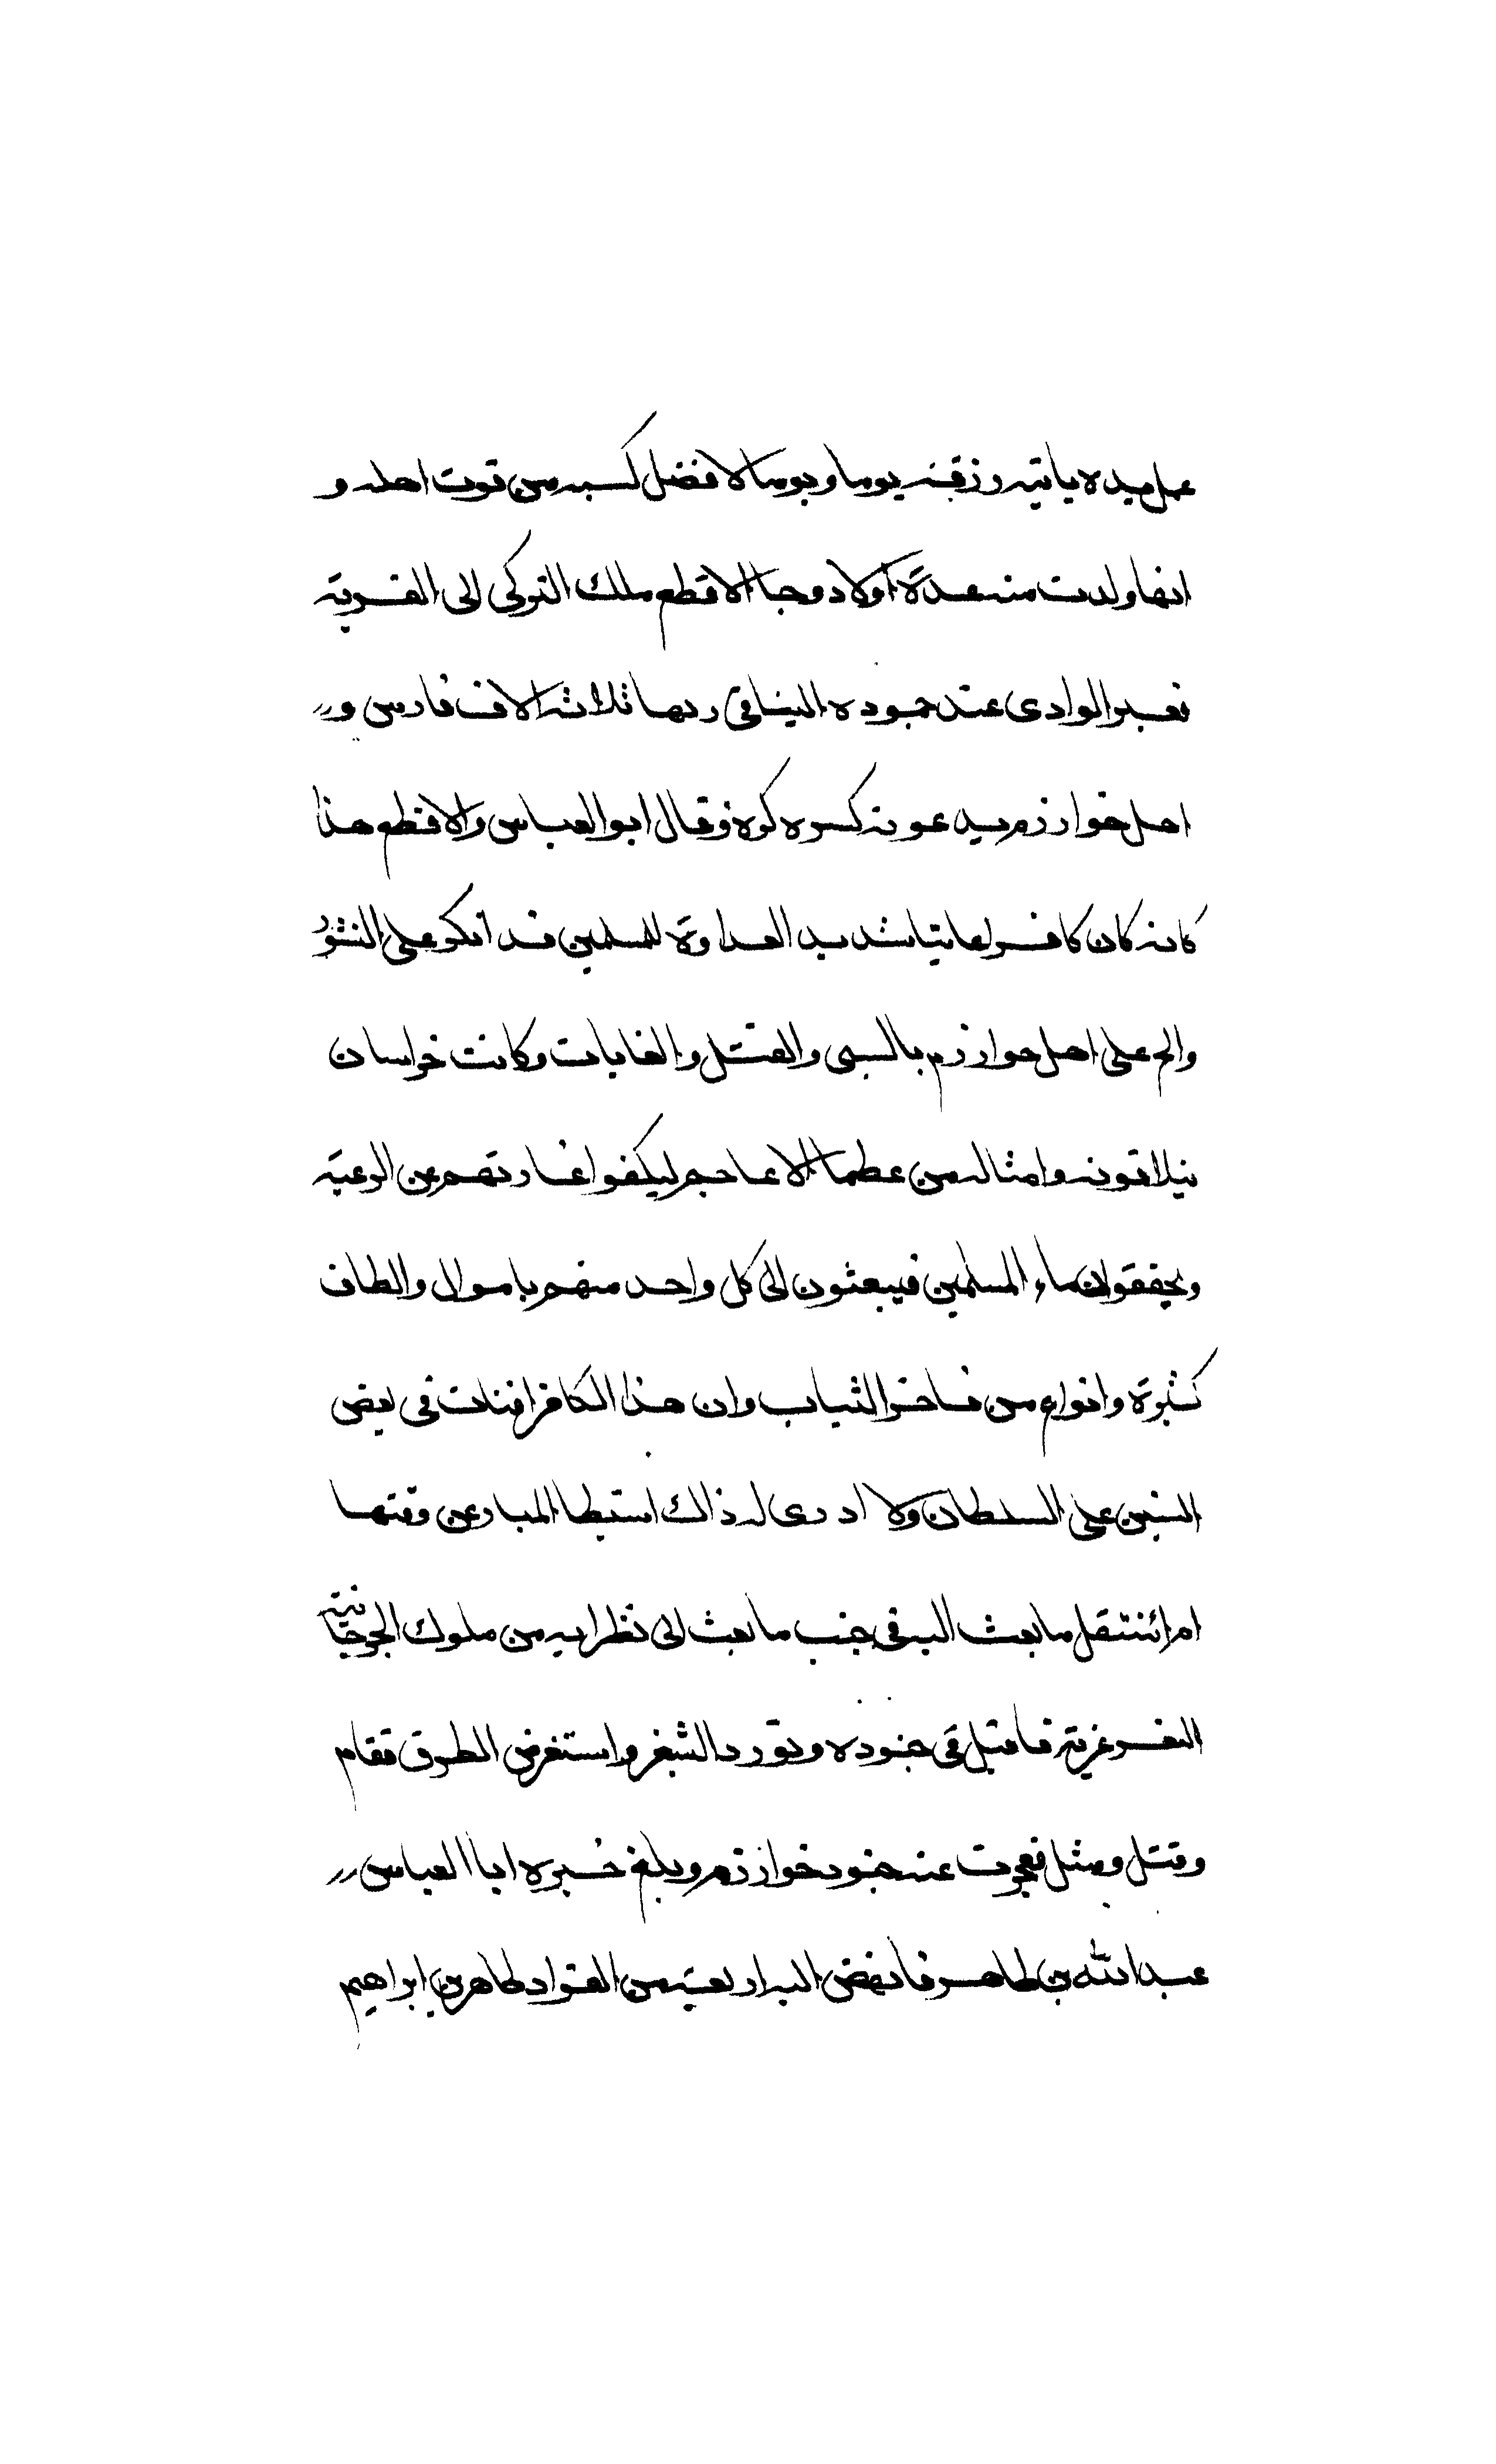 عمل يده ياتيه رزقه يوما ويوما لا فضل كسبه من قوت اهله و
انها ولدت منه عدة اولاد وجا الاقطع ملك التركى الى القرية
فعبر الوادى عند جموده اليناقى ربها ثلاثه الاف فارس و
اهل خوارزم يدعونه كسره كوة وقال ابو العباس والاقطع هذا
كانه كان كافرا عاتيا شديد العداوة للمسلمين قد انكر على الثغور
والح على اهل خوارزم بالسبى والقتل والغايات وكانت خراسان
يلاقونه وامثاله من عظما الاعاجم ليكفوا غارتهم عن الرعية
ويحفقوا دماء المسلمين فيبعثون الى كل واحد منهم باموال والطاف
كثيرة وانواع من فاخر الثياب وان هذا الكافر افتات فى بعض
السنين على السلطان ولا ادرى له ذالك استبطا المبار عن وقتها
ام ائنتقل ما بعث اليه فى جنب ما بعث الى نظرايه من ملوك الجرجانية
الغزغزية فاقبل فى جنوده وتورد الثغر واستغرض الطرق فقام
وقتل ومثل فعجزت عنه جنود خوارزم وبلغ خبره ابا العباس
عبدالله بن طاهر فانهض اليه اربعة من القواد طاهر بن ابراهيم